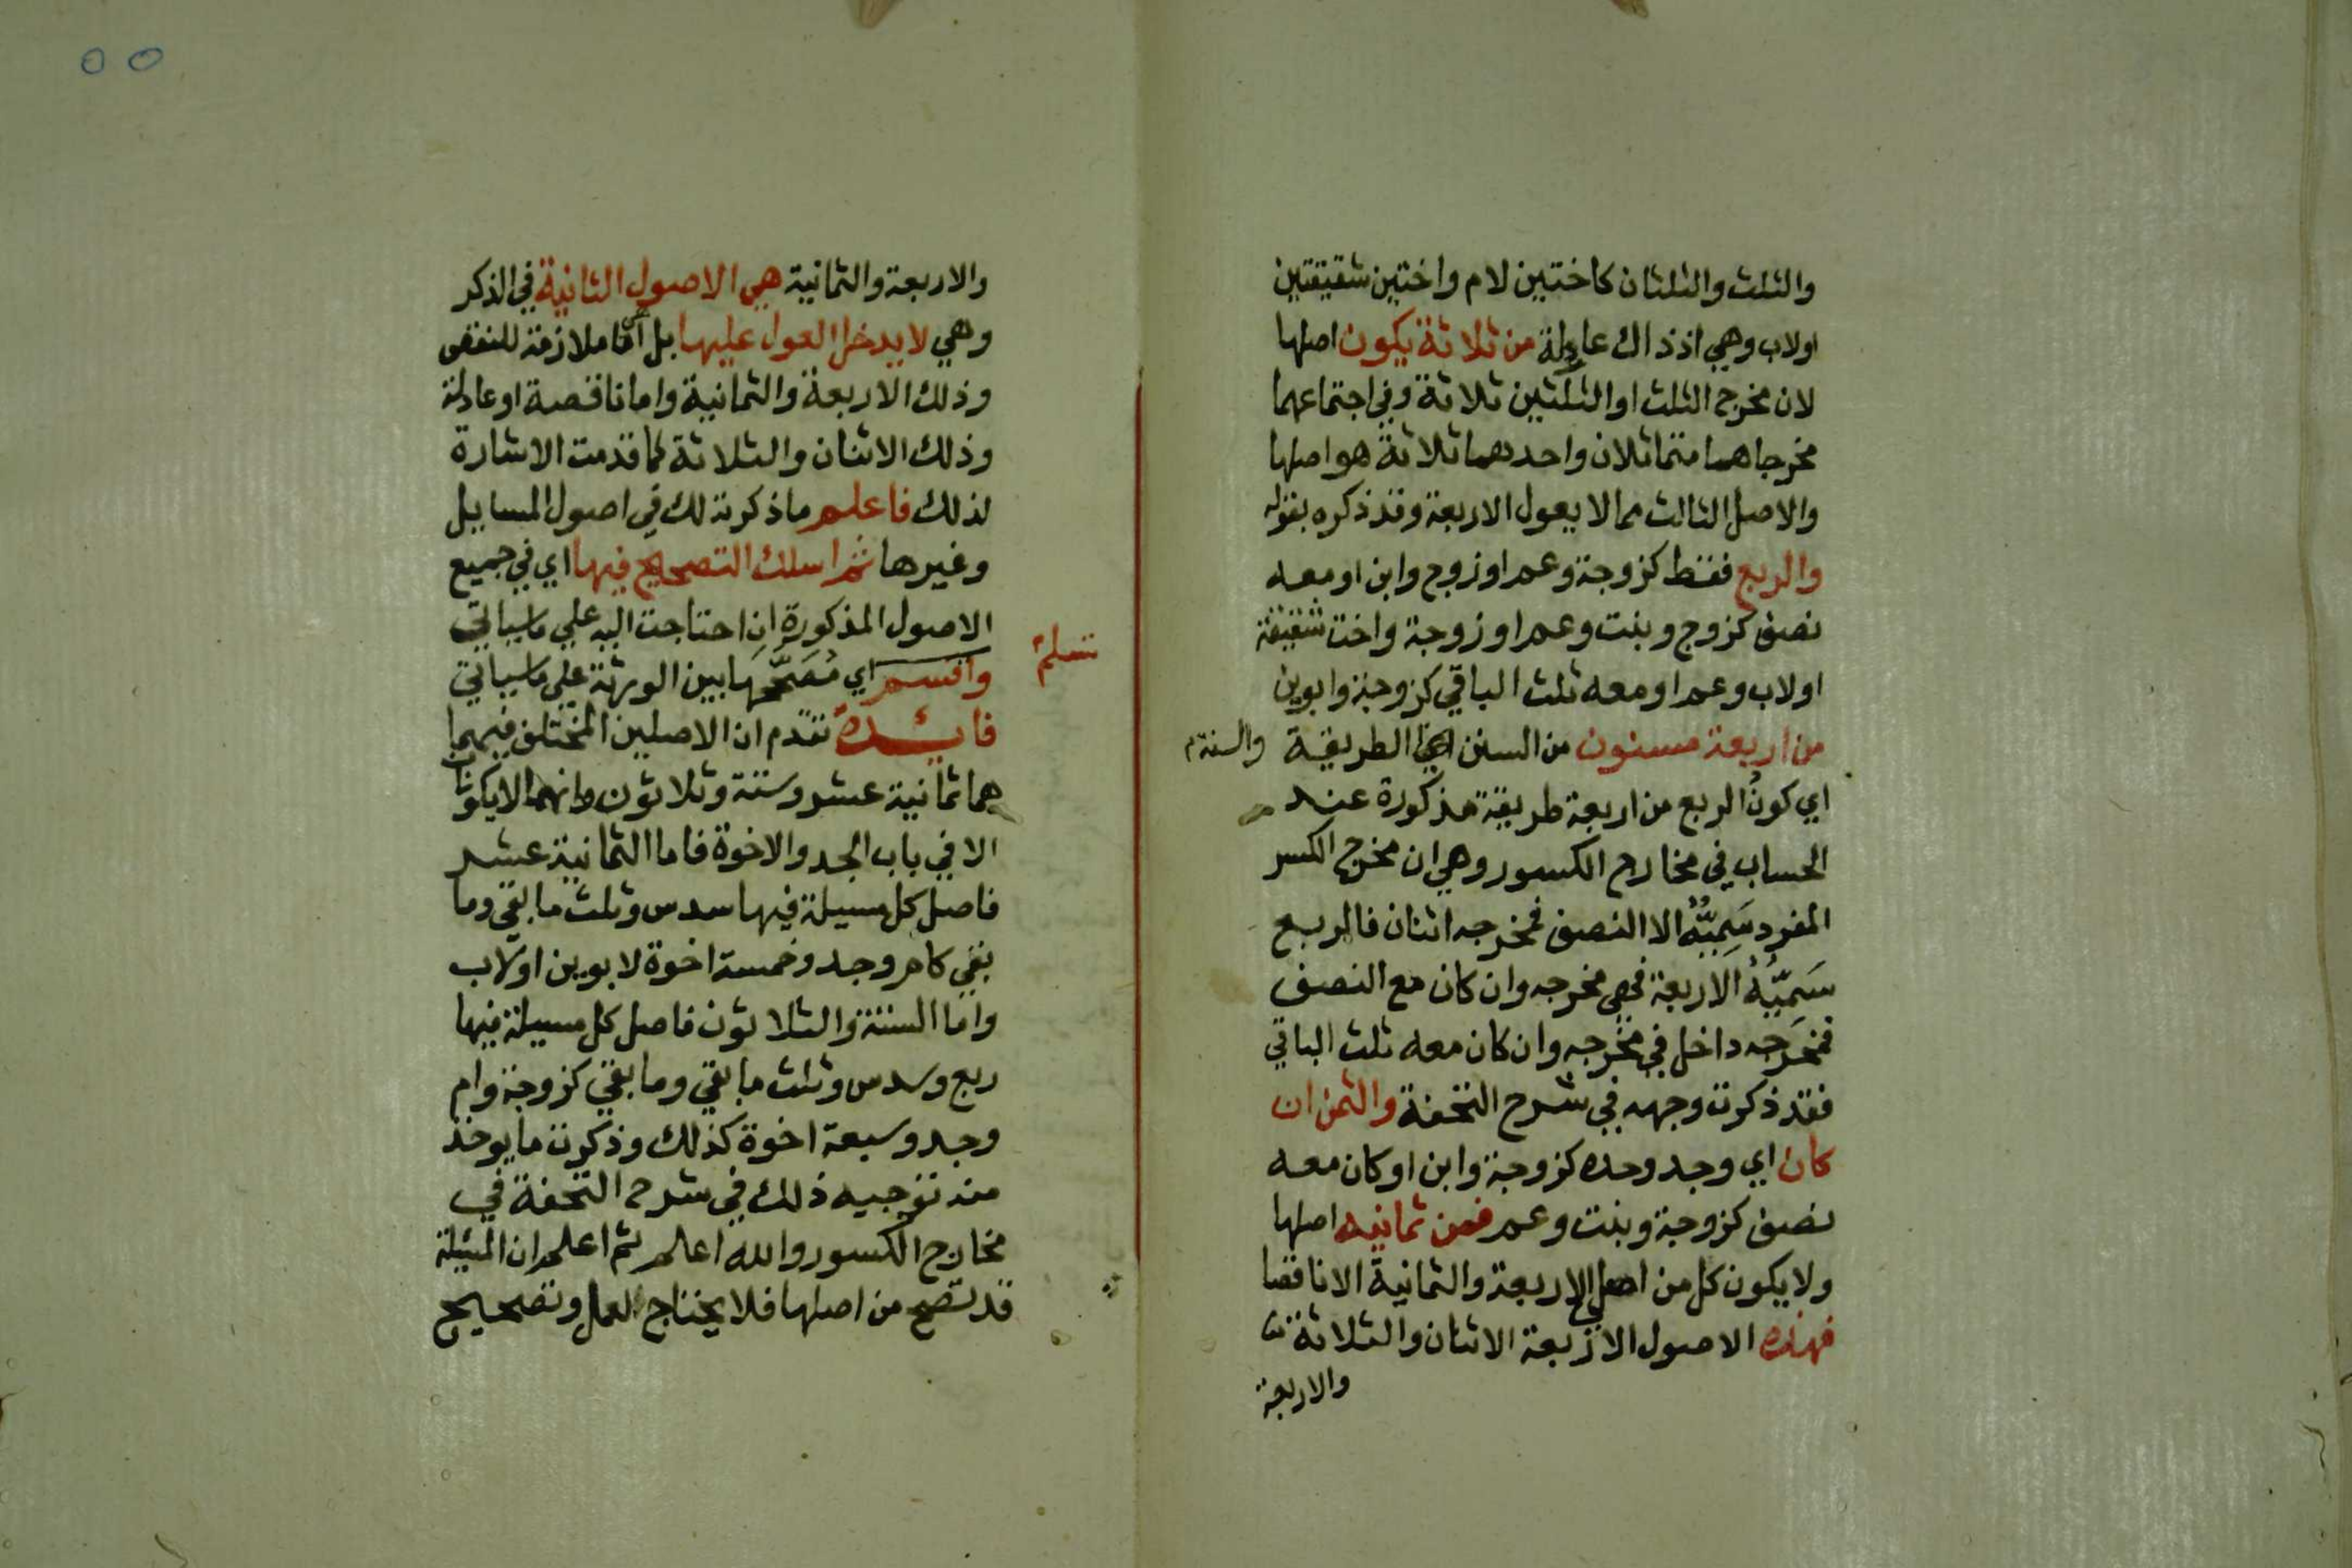 والثلث والثلثان كاختين لام واختين شقيقتين
اولاب وهي اذ ذاك عادلة من ثلاثة يكون اصلها
لان مخرج الثلث او الثلثين ثلاثة وفي اجتماعهما
مخرجاهما متماثلان واحدهما ثلاثة هو اصلها
والاصل الثالث مما لا يعول الاربعة وقد ذكره بقوله
والربع فقط كزوجة وعم او زوج وابن او معه
نصف كزوج وبنت وعم او زوجة واخت شقيقة
اولاب وعم او معه ثلث الباقي كزوجة وابوين
من اربعة مسنون من السنن اي الطريقة والسنة م
اي كون الربع من اربعة طريقة مذكورة عند
الحساب في مخارج الكسور وهي ان مخرج الكسر
المفرد سَمِيُّهُ الا النصف فمخرجه اثنان فالربع
سَمِيُّهُ الاربعة فهي مخرجه وان كان مع النصف
فمَخرجه داخل في مخرجه وان كان معه ثلث الباقي
فقد ذكرت وجهه في شرح التحفة والثمن ان
كان اي وجد وحده كزوجة وابن او كان معه
نصف كزوجة وبنت وعم فمن ثمانيه اصلها
ولا يكون كل من اصلي الاربعة والثمانية الا ناقصا
فهذه الاصول الاربعة الاثنان والثلاثة
والاربعة
٥٥
والاربعة والثمانية هي الاصول الثانية في الذكر
وهي لا يدخل العول عليها بل اما ملازمة للنقص
وذلك الاربعة والثمانية واما ناقصة او عادلة
وذلك الاثنان والثلاثة كما قدمت الاشارة
لذلك فاعلم ما ذكرته لك في اصول المسايل
وغيرها ثم اسلك التصحيح فيها اي في جميع
الاصول المذكورة ان احتاجت اليه علي ما سياتي
واقسم اي مُصَحَّحَها بين الورثة علي ما سياتي
تسلم
فايدة تقدم ان الاصلين المختلف فيهما
هما ثمانية عشر وستة وثلاثون وانهما لا يكونان
الا في باب الجد والاخوة فاما الثمانية عشر
فاصل كل مسيلة فيها سدس وثلث ما بقي وما
بقي كام وجد وخمسة اخوة لابوين اولاب
واما الستة والثلاثون فاصل كل مسيلة فيها
ربع وسدس وثلث ما بقي وما بقي كزوجة وام
وجد وسبعة اخوة كذلك وذكرت ما يوخذ
منه توجيه ذلك في شرح التحفة في
مخارج الكسور والله اعلم ثم اعلم ان المسئلة
قد تصح من اصلها فلا يحتاج لعمل وتصحيح